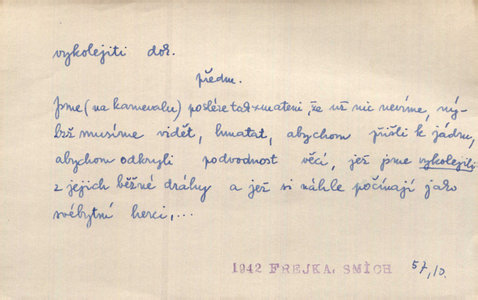 vykolejiti dok.
předm.
Jsme (na karnevalu) posléze tak zmateni, že už nic nevíme, ný-
brž musíme vidět, hmatat, abychom přišli k jádru,
abychom odkryli podvodnost věcí, jež jsme vykolejili
z jejich běžné dráhy a jež si náhle počínají jako
svébytní herci,...
1942 FREJKA, SMÍCH 57,10.